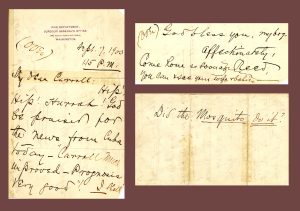 WAR DEPARTMENT,
SURGEON GENERAL'S OFFICE,
WASHINGTON.
(over) Sept. 7, 1900
P.M.
My dear Carroll:
Hip!
Hip! Hurrah! God
be praised for
the news from Cuba
today - Carroll much
improved - Prognosis
very good"!
(over) God bless you, my boy.
Affectionately,
Reed.
Come home
Did the Mosquito Do it?